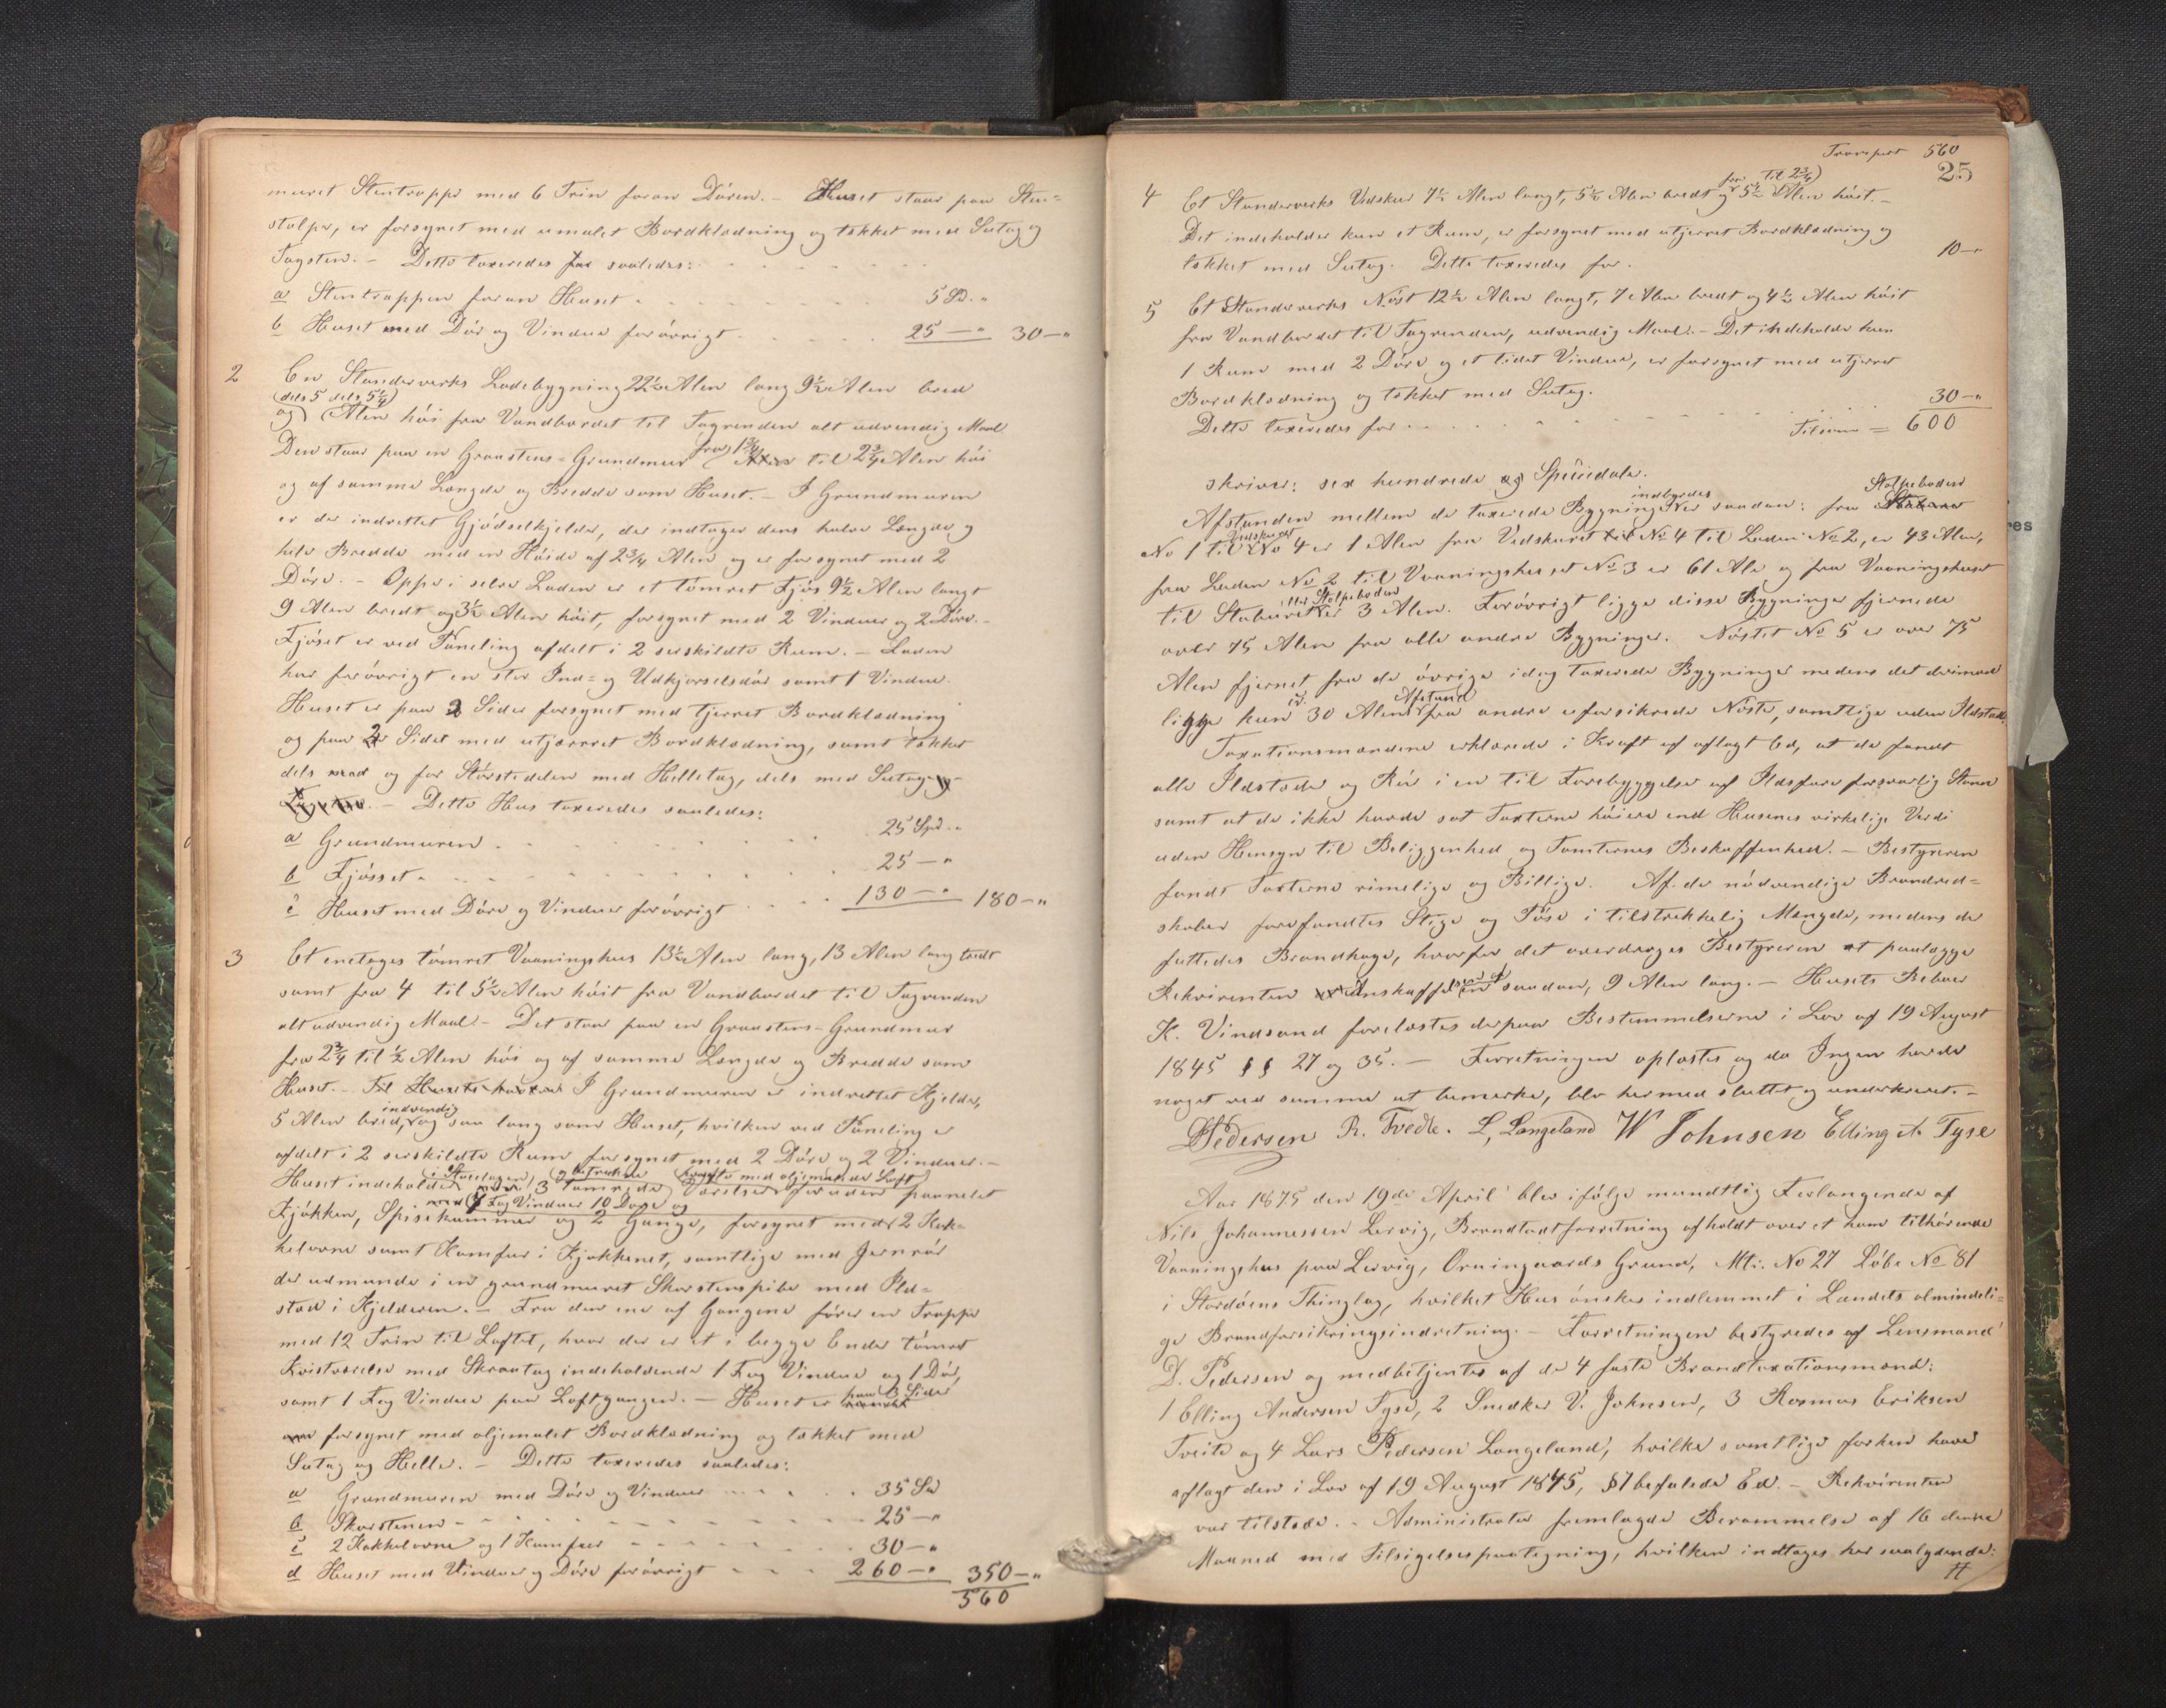 muret Stentrappe med 6 Trin foran Dören. - Huset staar paa Sten-
stolpe, er forsynet med umalet Bordklædning og tækket med Sutag og
Tagsten. - Dette taxeredes saaledes:
a Stentrappen foran Huset . 5 Sp. "
b Huset med Dör og Vindue forövrigt . 25 — " 30 — "
2 En Standerverks Ladebygning 22½ Alen lang 9½ Alen bred
(dels 5 dels 5¼)
og Alen höi fra Vandbordet til Tagrenden alt udvendig Maal.
Den staar paa en Graastens-Grundmur fra 1¾ til 2¾ Alen höi
og af samme Længde og Bredde som Huset. - I Grundmuren
er der indrettet Gjödselkjelder, der indtager dens halve Længde og
hele Bredde med en Höide af 2¾ Alen og er forsynet med 2
Döre. - Oppe i selve Laden er et tömret Fjös 9½ Alen langt
9 Alen bredt og 3½ Alen höit, forsynet med 2 Vinduer og 2 Döre. -
Fjöset er ved Paneling afdelt i 2 serskildte Rum. - Laden
har forövrigt en stor Ind- og Udkjörselsdör samt 1 Vindue.
Huset er paa 2 Sider forsynet med tjerret Bordklædning
og paa 2 Sider med utjærret Bordklædning, samt tækket
dels med og for Störstedelen med Helletag, dels med Sutag og
Tagsten. - Dette Hus taxeredes saaledes:
a Grundmuren . 25 Spd. "
b Fjösset . 25 — "
c Huset med Döre og Vinduer forövrigt . 130 — " 180 — "
3 Et enetages tömret Vaaningshus 13½ Alen lang, 13 Alen bredt
samt fra 4 til 5½ Alen höit fra Vandbordet til Tagrenden
alt udvendig Maal. - Det staar paa en Graastens-Grundmur
fra 2¾ til ½ Alen höi og af samme Længde og Bredde som
Huset. - I Grundmuren er indrettet Kjelder,
5 Alen bred, indvendig og saa lang som Huset, hvilken ved Paneling er
afdelt i 2 serskildte Rum forsynet med 2 Döre og 2 Vinduer. -
i Stueetagen betrukne med oljemalede Loft
Huset indeholder 3 tömrede Værelser foruden paanelet
med 7 Fag Vinduer 10 Döre og
Kjökken, Spisekammer og 2 Gange, forsynet med 2 Kak-
kelovne samt Komfur i Kjökkenet, samtlige med Jernrör
der udmunde i en grundmuret Skorstenspibe med Ild-
sted i Kjelderen. - Fra den ene af Gangene förer en Trappe
med 12 Trin til Loftet, hvor der er et i begge Ender tömret
Kvistværelse med Skraatag indeholdende 1 Fag Vindue og 1 Dör,
samt 1 Fag Vindue paa Loftgangen. - Huset er paa 3 Sider
forsynet med oljemalet Bordklædning og tækket med
Sutag og Helle. - Dette taxeredes saaledes:
a Grundmuren med Döre og Vinduer . 35 Sp
b Skorstenen . 25 — "
c 2 Kakkelovne og 1 Komfur . 30 — "
d Huset med Vinduer og Döre forövrigt . 260 — " 350 — "
560
Transport 560
25
for til 2¾)
4 Et Standerverks Vedskur 7½ Alen langt, 5½ Alen bredt og 5½ Alen höit. -
Det indeholder kun et Rum, er forsynet med utjerret Bordklædning og
tækket med Sutag. Dette taxeredes for . 10 — "
5 Et Standerverks Nöst 12½ Alen langt, 7 Alen bredt og 4½ Alen höit
fra Vandbordet til Tagrenden, udvendig Maal. - Det indeholder kun
1 Rum med 2 Döre og et lidet Vindue, er forsynet med utjerret
Bordklædning og tækket med Sutag.
Dette taxeredes for . 30 — "
Tilsam = 600
skriver: sex hundrede Speciedaler.
indbyrdes Stolpeboden
Afstanden mellem de taxerede Bygninger er saadan: fra
Vedskuret
No 1 til No 4 er 1 Alen fra Vedskuret No 4 til Laden No 2, er 43 Alen,
fra Laden No 2 til Vaaningshuset No 3 er 61 Ale og fra Vaaningshuset
eller Stolpeboden
til Staburet er 3 Alen. Forövrigt ligge disse Bygninger fjernede
over 75 Alen fra alle andre Bygninger. Nöstet No 5 er over 75
Alen fjernet fra de övrige idag taxerede Bygninger medens det derimod
er Afstand
ligge kun 30 Alen fra andre uforsikrede Nöste, samtlige uden Ildsted.
Taxationsmændene erklærede i Kraft af aflagt Ed, at de fandt
alle Ildstede og Rör i en til Forebyggelse af Ildsfare forsvarlig Stand
samt at de ikke havde sat Taxterne höiere end Husenes virkelige Verdi
uden Hensyn til Beliggenhed og Tomternes Beskaffenhed. - Bestyreren
fandt Taxterne rimelige og Billige. Af de nödvendige Brandred-
skaber forefandtes Stige og Pöse i tilstrækkelig Mængde, medens der
fattedes Brandhage, hvorfor det overdroges Bestyreren at paalægge
Rekvirenten Anskaffelsen af saadan, 9 Alen lang. - Husets Beboer
K. Vindsand forelæstes derpaa Bestemmelserne i Lov af 19 August
1845 §§ 27 og 35. - Forretningen oplæstes og da Ingen havde
noget ved samme at bemærke, blev hermed sluttet og underkrevet. -
DPedersen R. Tvedte. L, Langeland W Johnsen Elling A. Tyse
Aar 1875 den 19de April blev ifölge mundtlig Forlangende af
Nils Johannessen Lervig, Brandtaxtforretning afholdt over et ham tilhörende
Vaaningshus paa Lervig, Orningaards Grund, Mt: No 27 Löbe No 81
i Stordöens Thinglag, hvilket Hus önskes indlemmet i Landets almindeli-
ge Brandforsikringsindretning. - Forretningen bestyredes af Lensmand
D. Pedersen og medbetjentes af de 4 faste Brandtaxationsmænd:
1 Elling Andersen Tyse, 2 Snedker V. Johnsen, 3 Rasmus Eriksen
Tveite og 4 Lars Pedersen Langeland, hvilke samtlige forhen have
aflagt den i Lov af 19 August 1845, §7 befalede Ed. - Rekvirenten
var tilstede. - Administrator fremlagde Berammelse af 16 denne
Maaned med Tilsigelsespaategning, hvilken indtages her saalydende: